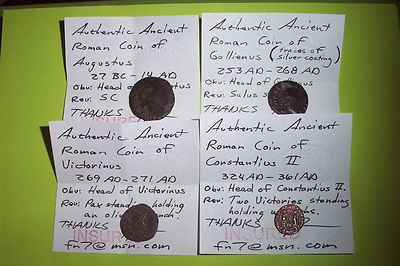 Authentic Ancient
Roman Coin of
Augustus
27 BC - 14 AD
Obv: Head of
Rev: SC
THANKS
INSURE
Authentic Ancient
Roman Coin of
Gallienus (traces of silver coating)
253 AD - 268 AD
Obv: Head of
Rev: Salus
THANKS
Authentic Ancient
Roman Coin of
Victorinus
269 AD - 271 AD
Obv: Head of Victorinus
Rev: Pax standing holding
an olive
THANKS
INSURED
fn7@msn.com
Authentic Ancient
Roman Coin of
Constantius II
324 AD - 361 AD
Obv: Head of Constantius II.
Rev: Two Victories standing
holding
THANKS
INSURED
fn7@msn.com